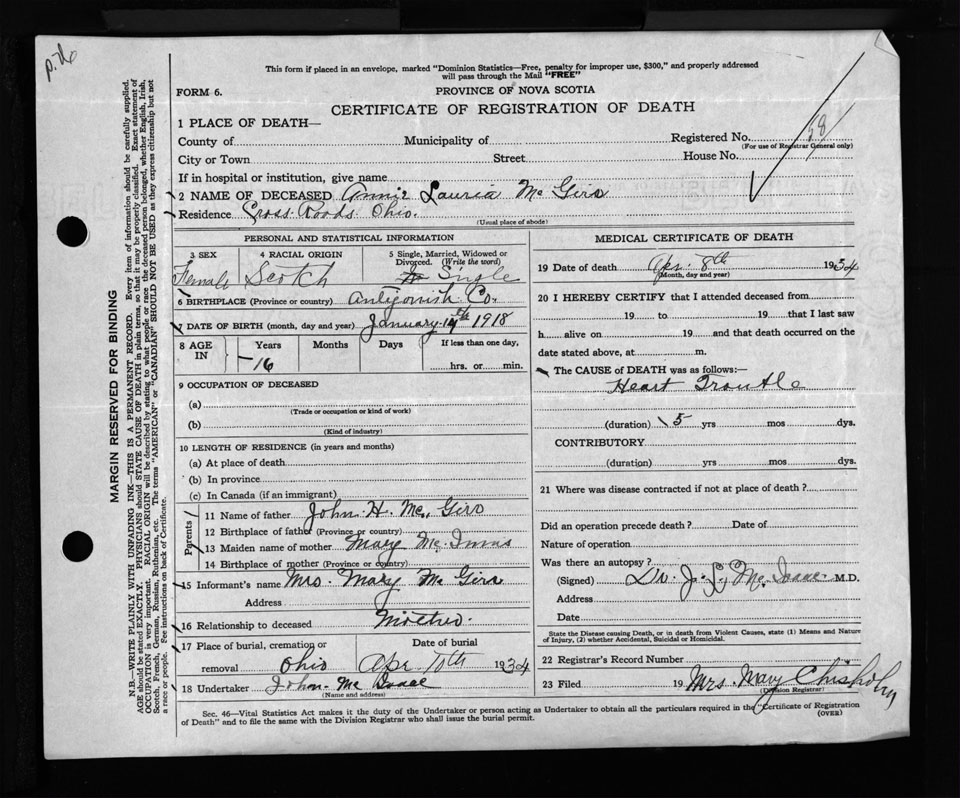 p. 76
This form if placed in an envelope, marked "Dominion Statistics—Free, penalty for improper use, $300," and properly addressed
will pass through the Mail "FREE"
FORM 6.
PROVINCE OF NOVA SCOTIA
CERTIFICATE OF REGISTRATION OF DEATH
1 PLACE OF DEATH—
County of Municipality of Registered No. 38
(For use of Registrar General only)
City or Town Street House No.
If in hospital or institution, give name
2 NAME OF DECEASED Annie Lauria Mc Girs
Residence Cross Roods Ohio.
(Usual place of abode)
PERSONAL AND STATISTICAL INFORMATION
3 SEX 4 RACIAL ORIGIN 5 Single, Married, Widowed or
Divorced. (Write the word)
Female Scotch Single
6 BIRTHPLACE (Province or country) Antigonish Co.
7 DATE OF BIRTH (month, day and year) January 14th 1918
8 AGE IN Years Months Days If less than one day,
16 hrs. or min.
9 OCCUPATION OF DECEASED
(a)
(Trade or occupation or kind of work)
(b)
(Kind of industry)
10 LENGTH OF RESIDENCE (in years and months)
(a) At place of death
(b) In province
(c) In Canada (if an immigrant)
Parents
11 Name of father John H. Mc, Girs
12 Birthplace of father (Province or country)
13 Maiden name of mother Mary Mc Innis
14 Birthplace of mother (Province or country)
15 Informant's name Mrs. Mary Mc Girs
Address
16 Relationship to deceased Mother.
17 Place of burial, cremation or Date of burial
removal Ohio Apr 10th 1934
18 Undertaker John Mc Isaac
(Name and address)
MEDICAL CERTIFICATE OF DEATH
19 Date of death Apr. 8th 1934
(Month, day and year)
20 I HEREBY CERTIFY that I attended deceased from
19 to 19 that I last saw
h alive on 19 and that death occurred on the
date stated above, at m.
The CAUSE of DEATH was as follows:—
Heart Trouble
(duration) 5 yrs mos dys.
CONTRIBUTORY
(duration) yrs mos dys.
21 Where was disease contracted if not at place of death?
Did an operation precede death? Date of
Nature of operation
Was there an autopsy?
(Signed) Dr. J. L. Mc Isaac M.D.
Address
Date
State the Disease causing Death, or in death from Violent Causes, state (1) Means and Nature
of Injury, (2) whether Accidental, Suicidal or Homicidal.
22 Registrar's Record Number
23 Filed 19 Mrs. Mary Chisholm
(Division Registrar)
Sec. 46—Vital Statistics Act makes it the duty of the Undertaker or person acting as Undertaker to obtain all the particulars required in the "Certificate of Registration
of Death" and to file the same with the Division Registrar who shall issue the burial permit.
(OVER)
MARGIN RESERVED FOR BINDING
N.B.—WRITE PLAINLY WITH UNFADING INK—THIS IS A PERMANENT RECORD. Every item of information should be carefully supplied.
AGE should be stated EXACTLY. PHYSICIANS should STATE CAUSE OF DEATH in plain terms, so that it may be properly classified. Exact statement of
OCCUPATION is very important. RACIAL ORIGIN will be described by stating to what people or race the deceased person belonged, whether English, Irish,
Scotch, French, German, Russian, Ruthenian, etc. The terms "AMERICAN" or "CANADIAN" SHOULD NOT BE USED as they express citizenship but not
a race or people. See instructions on back of Certificate.